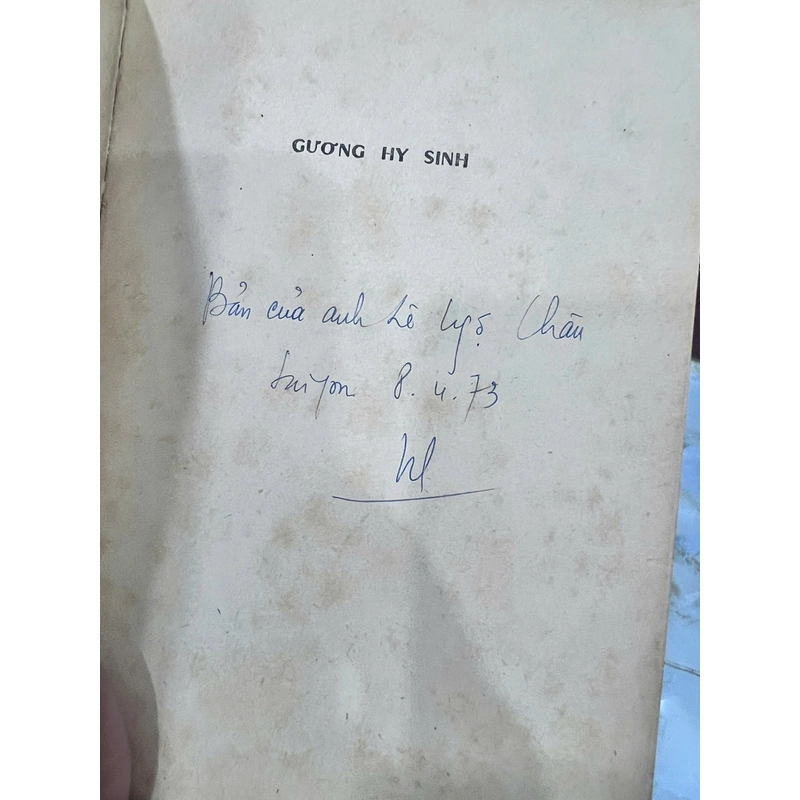 GƯƠNG HY SINH
Bản của anh Lê Ngộ Châu
Saigon 8.4.73